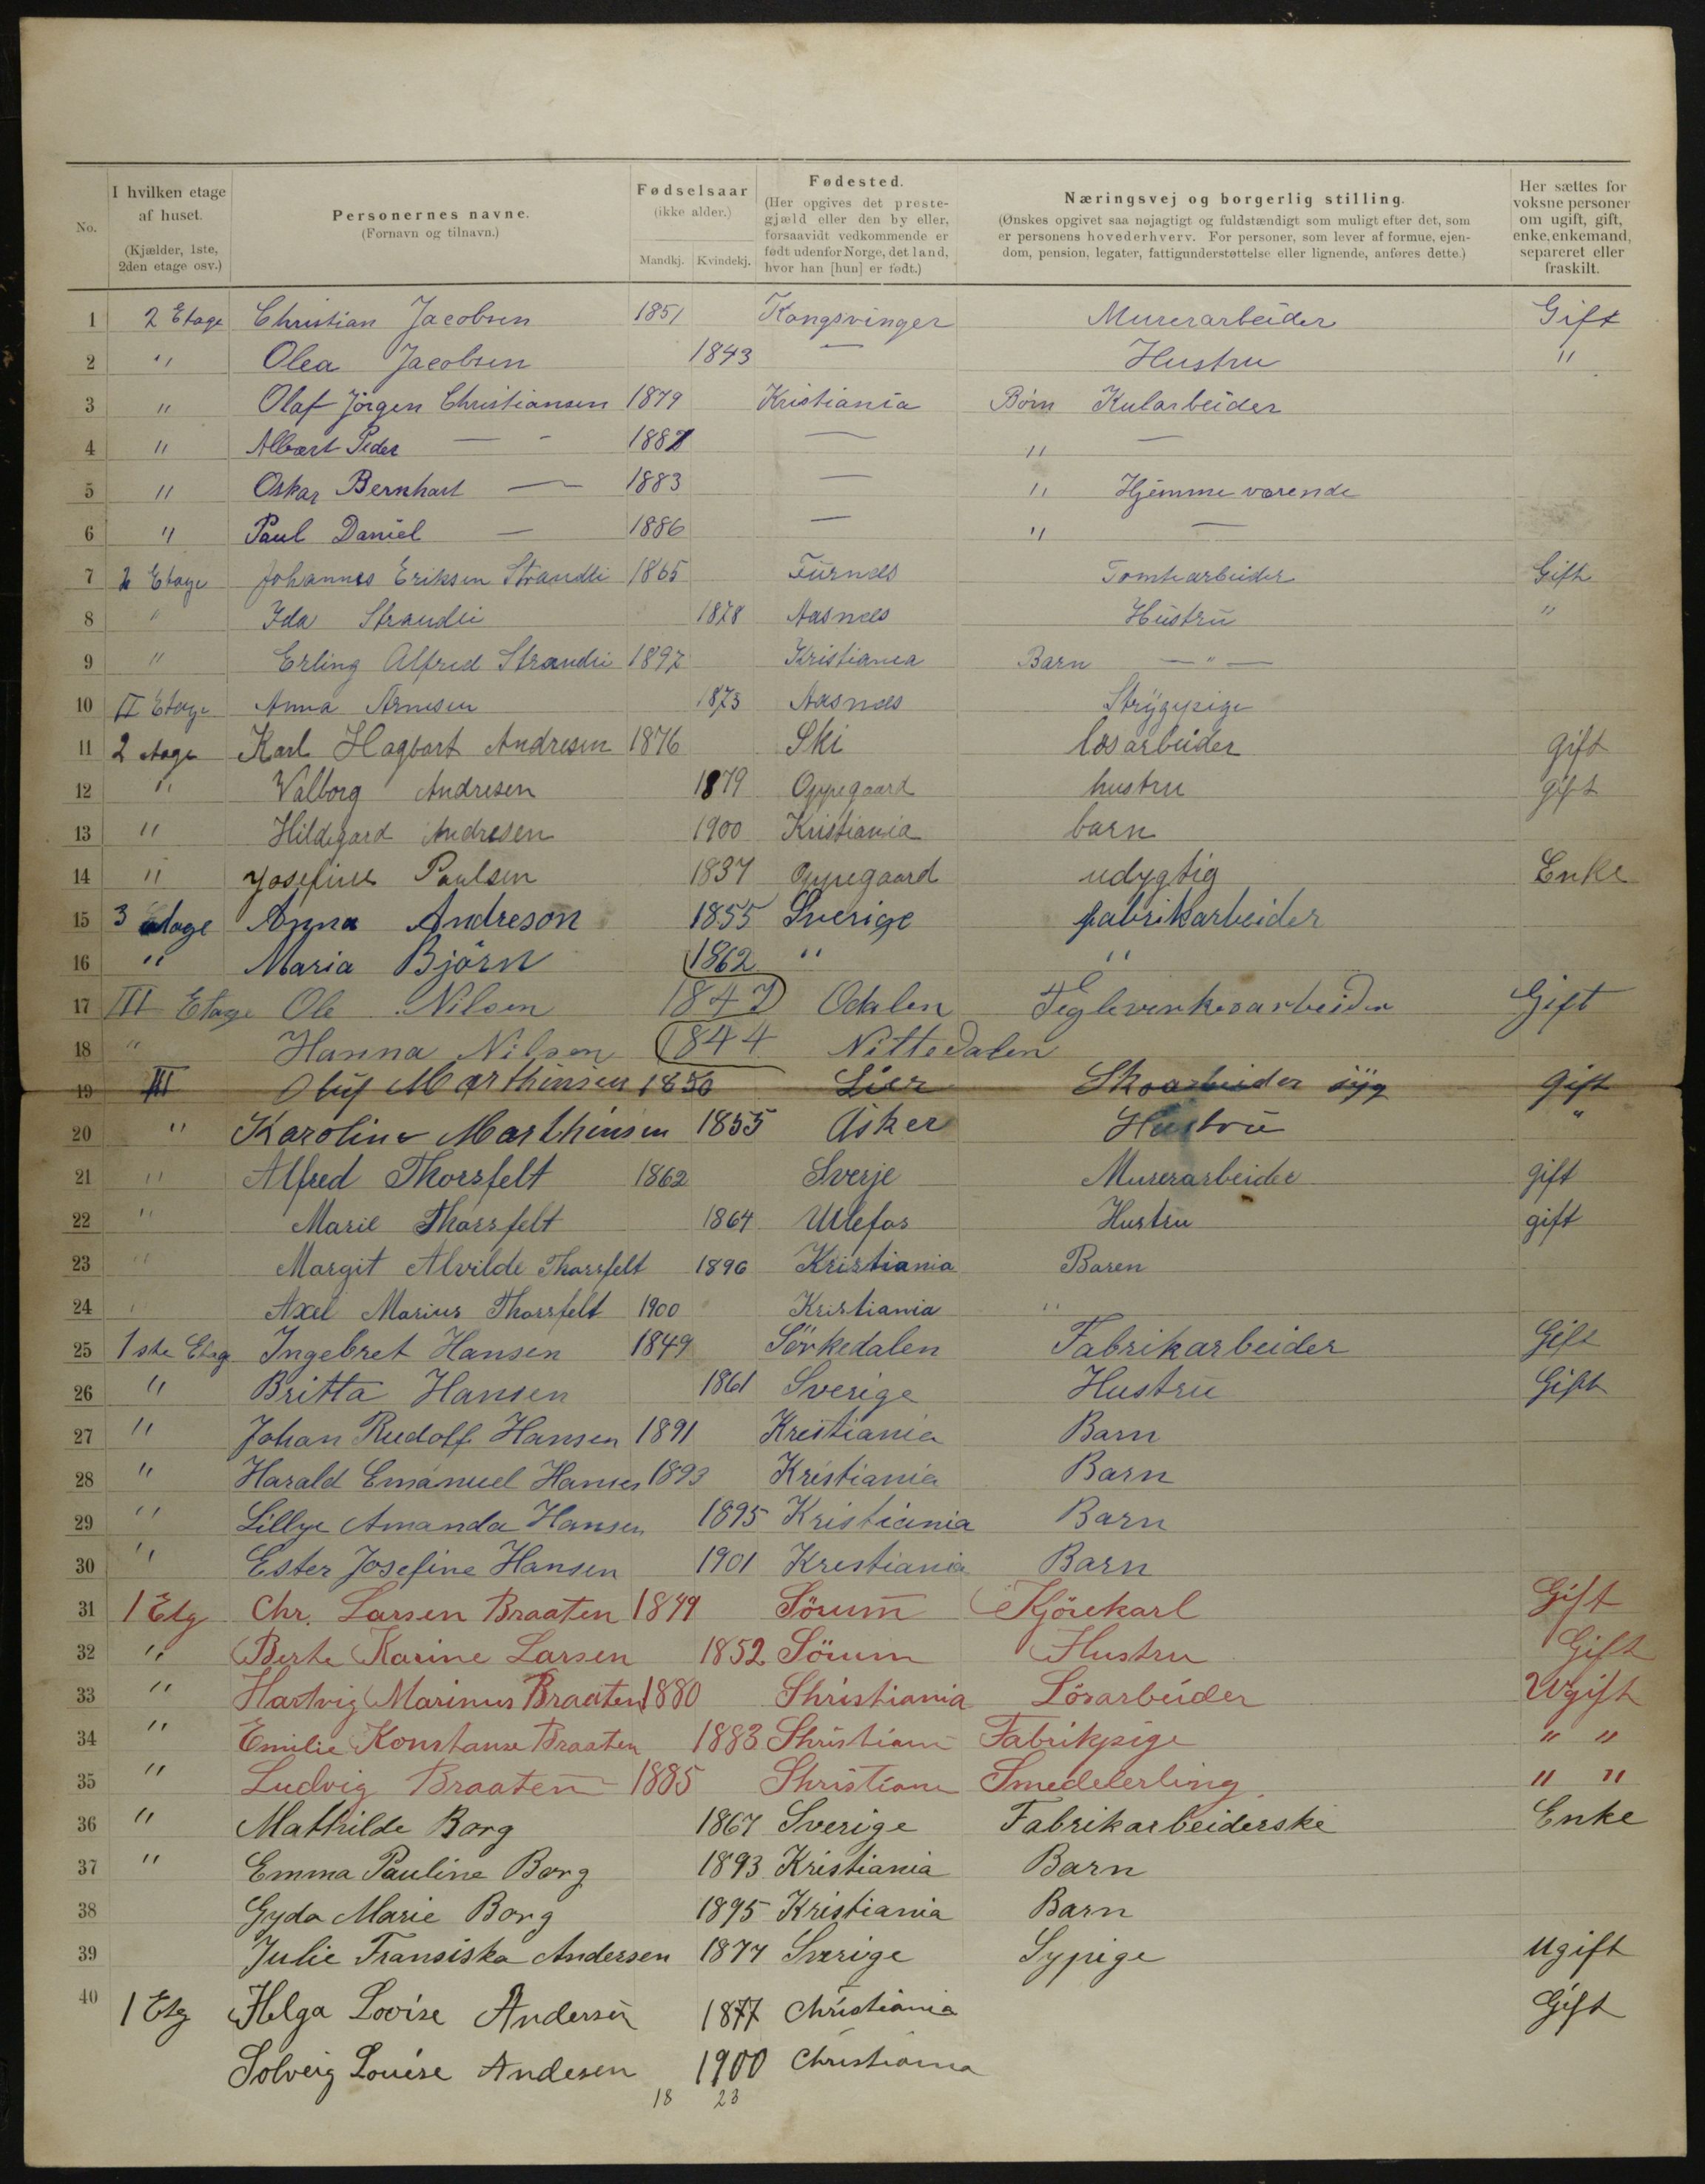 No. | I hvilken etage af huset. (Kjælder, 1ste, 2den etage osv.) | Personernes navne. (Fornavn og tilnavn.) | Fødselsaar (ikke alder.) Mandkj. Kvindekj. | Fødested. (Her opgives det prestegjæld eller den by eller, forsaavidt vedkommende er født udenfor Norge, det land, hvor han [hun] er født.) | Næringsvej og borgerlig stilling. (Ønskes opgivet saa nøjagtigt og fuldstændigt som muligt efter det, som er personens hovederhverv. For personer, som lever af formue, ejendom, pension, legater, fattigunderstøttelse eller lignende, anføres dette.) | Her sættes for voksne personer om ugift, gift, enke, enkemand, separeret eller fraskilt.
1 2 Etage Christian Jacobsen 1851 Kongsvinger Murerarbeider Gift
2 " Olea Jacobsen 1843 — Hustru "
3 " Olaf Jörgen Christiansen 1879 Kristiania Börn Kularbeider
4 " Albert Peder — - 1882 — " —
5 " Oskar Bernhart — 1883 — " Hjemmeværende
6 " Paul Daniel — 1886 — " —
7 2 Etage Johannes Eriksen Strandli 1865 Furnæs Tomtearbeider Gift
8 " Ida Strandli 1878 Aasnæs Hustru "
9 " Erling Alfred Strandli 1897 Kristiania Barn — " —
10 II Etage Anna Arnesen 1873 Aasnæs Strygepige
11 2 etage Karl Hagbart Andresen 1876 Ski løsarbeider gift
12 " Valborg Andresen 1879 Oppegaard hustru gift
13 " Hildegard Andresen 1900 Kristiania barn
14 " Josefine Paulsen 1837 Oppegaard udygtig Enke
15 3 etage Anna Andreson 1855 Sverige fabrikarbeider
16 " Maria Björn 1862 " "
17 III Etage Ole Nilsen 1847 Odalen Teglverkesarbeider Gift
18 " Hanna Nilsen 1844 Nittedalen
19 III Oluf Marthinsen 1850 Lier Skoarbeider syg gift
20 " Karoline Marthinsen 1855 Asker Hustru "
21 " Alfred Thorsfelt 1862 Sverje Murerarbeider gift
22 " Marie Thorsfelt 1864 Ulefos Hustru gift
23 " Margit Alvilde Thorsfelt 1896 Kristiania Baren
24 " Axel Marius Thorsfelt 1900 Kristiania "
25 1ste Etag Ingebret Hansen 1849 Sörkedalen Fabrikarbeider Gift
26 " Britta Hansen 1861 Sverige Hustru Gift
27 " Johan Rudolf Hansen 1891 Kristiania Barn
28 " Harald Emanuel Hansen 1893 Kristiania Barn
29 " Lillye Amanda Hansen 1895 Kristiania Barn
30 " Ester Josefine Hansen 1901 Krestiania Barn
31 1 Etg Chr. Larsen Braaten 1849 Sörum Kjörekarl Gift
32 " Berte Karine Larsen 1852 Sörum Hustru Gift
33 " Hartvig Marinus Braaten 1880 Christiania Lösarbeider Ugift
34 " Emilie Konstanse Braaten 1883 Christiania Fabrikpige " "
35 " Ludvig Braaten 1885 Christiania Smedelerling " "
36 " Mathilde Borg 1867 Sverige Fabrikarbeiderske Enke
37 " Emma Pauline Borg 1893 Kristiania Barn
38 Gyda Marie Borg 1895 Kristiania Barn
39 Julie Fransiska Andersen 1877 Sverige Sypige ugift
40 1 Etg Helga Lovise Andersen 1877 Christiania Gift
Solveig Louise Andesen 1900 Christiania
18 23